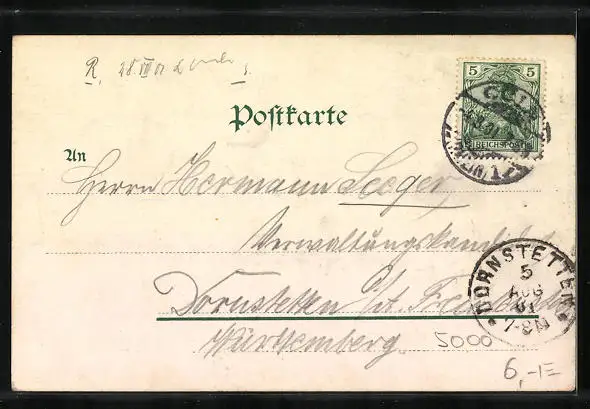 R, 28.VII 01
5 5
REICHSPOST
Postkarte
An
Herrn Hermann Seeger,
Verwaltungskandidat
Dornstetten
Württemberg
DORNSTETTEN
5
AUG
01
7-8N
5000
6,-